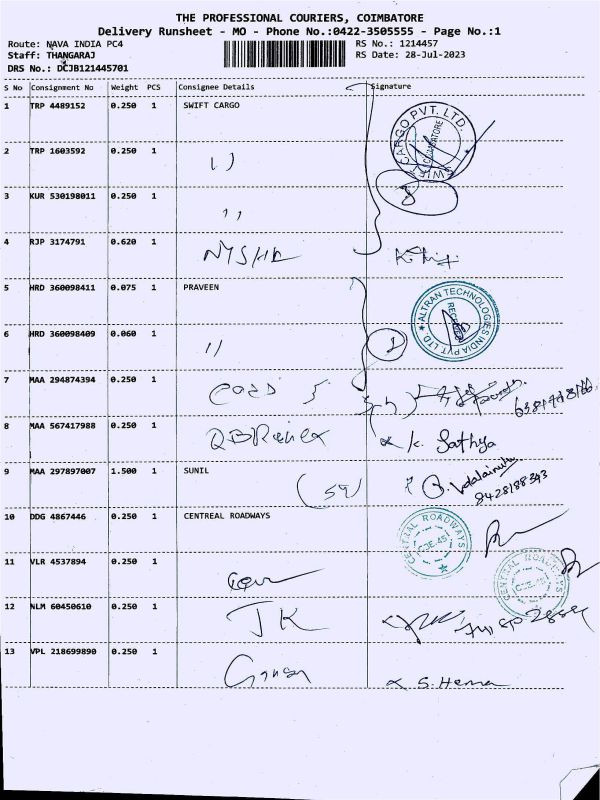 THE PROFESSIONAL COURIERS, COIMBATORE
Delivery Runsheet - MO - Phone No.:0422-3505555 - Page No.:1
Route: NAVA INDIA PC4 RS No.: 1214457
Staff: THANGARAJ RS Date: 28-Jul-2023
DRS No.: DCJB121445701
S No Consignment No Weight PCS Consignee Details Signature
1 TRP 4489152 0.250 1 SWIFT CARGO
SWIFT CARGO PVT. LTD.
COIMBATORE
2 TRP 1603592 0.250 1 ,,
3 KUR 530198011 0.250 1 ,,
4 RJP 3174791 0.620 1
5 HRD 360098411 0.075 1 PRAVEEN
ALTRAN TECHNOLOGIES INDIA PVT. LTD.
RECEIVED
6 HRD 360098409 0.060 1 ,,
7 MAA 294874394 0.250 1
8 MAA 567417988 0.250 1 K. Sathya
9 MAA 297897007 1.500 1 SUNIL
10 DDG 4867446 0.250 1 CENTREAL ROADWAYS
CENTRAL ROADWAYS
CBE-45
11 VLR 4537894 0.250 1
CENTRAL ROADWAYS
CBE-45
12 NLM 60450610 0.250 1 JK
13 VPL 218699890 0.250 1 S. Hema